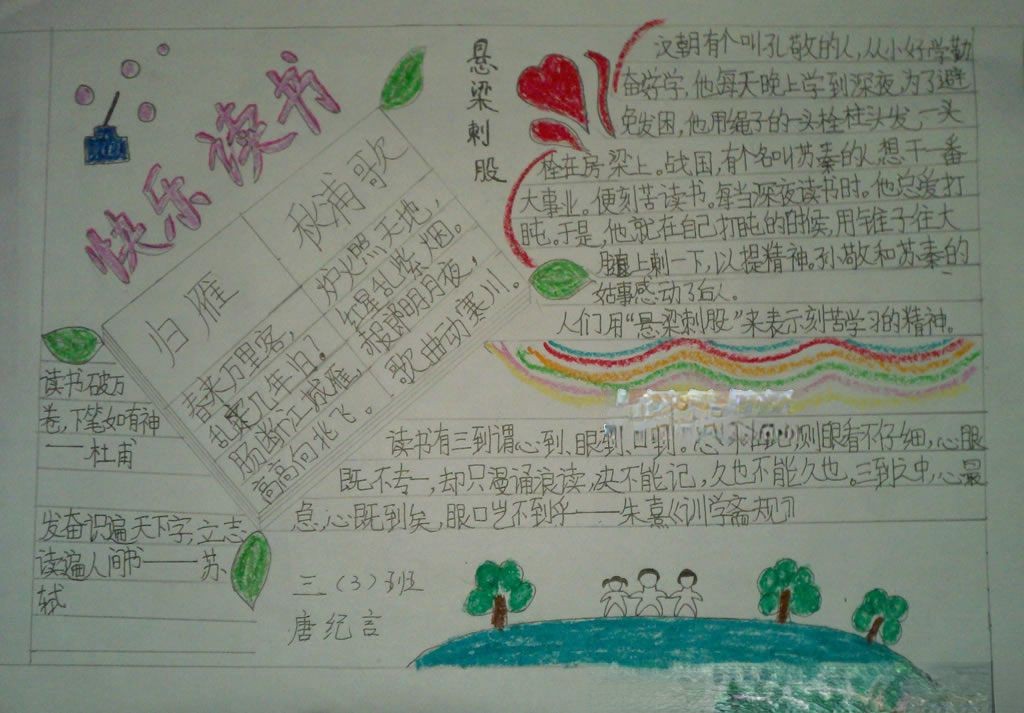 快乐读书
归雁
春来万里客,
乱定几年归?
肠断江城雁,
高高向北飞。
秋浦歌
炉火照天地,
红星乱紫烟。
报郎明月夜,
歌曲动寒川。
悬梁刺股
汉朝有个叫孔敬的人,从小好学勤
奋好学,他每天晚上学到深夜,为了避
免发困,他用绳子的一头栓柱头发,一头
栓在房梁上。战国,有个名叫苏秦的人想干一番
大事业。便刻苦读书。每当深夜读书时。他总爱打
盹。于是,他就在自己打盹的时候,用锥子往大
腿上刺一下,以提精神。孙敬和苏秦的
姑事感动了后人。
人们用“悬梁刺股”来表示刻苦学习的精神。
读书破万
卷,下笔如有神
——杜甫
发奋识遍天下字,立志
读遍人间书——苏
轼
读书有三到谓心到、眼到、口到。心不在此,则眼看不仔细,心眼
既不专一,却只漫诵浪读,决不能记,久也不能久也。三到之中,心最
急,心既到矣,眼口岂不到乎——朱熹《训学斋规》
三(3)班
唐纪言